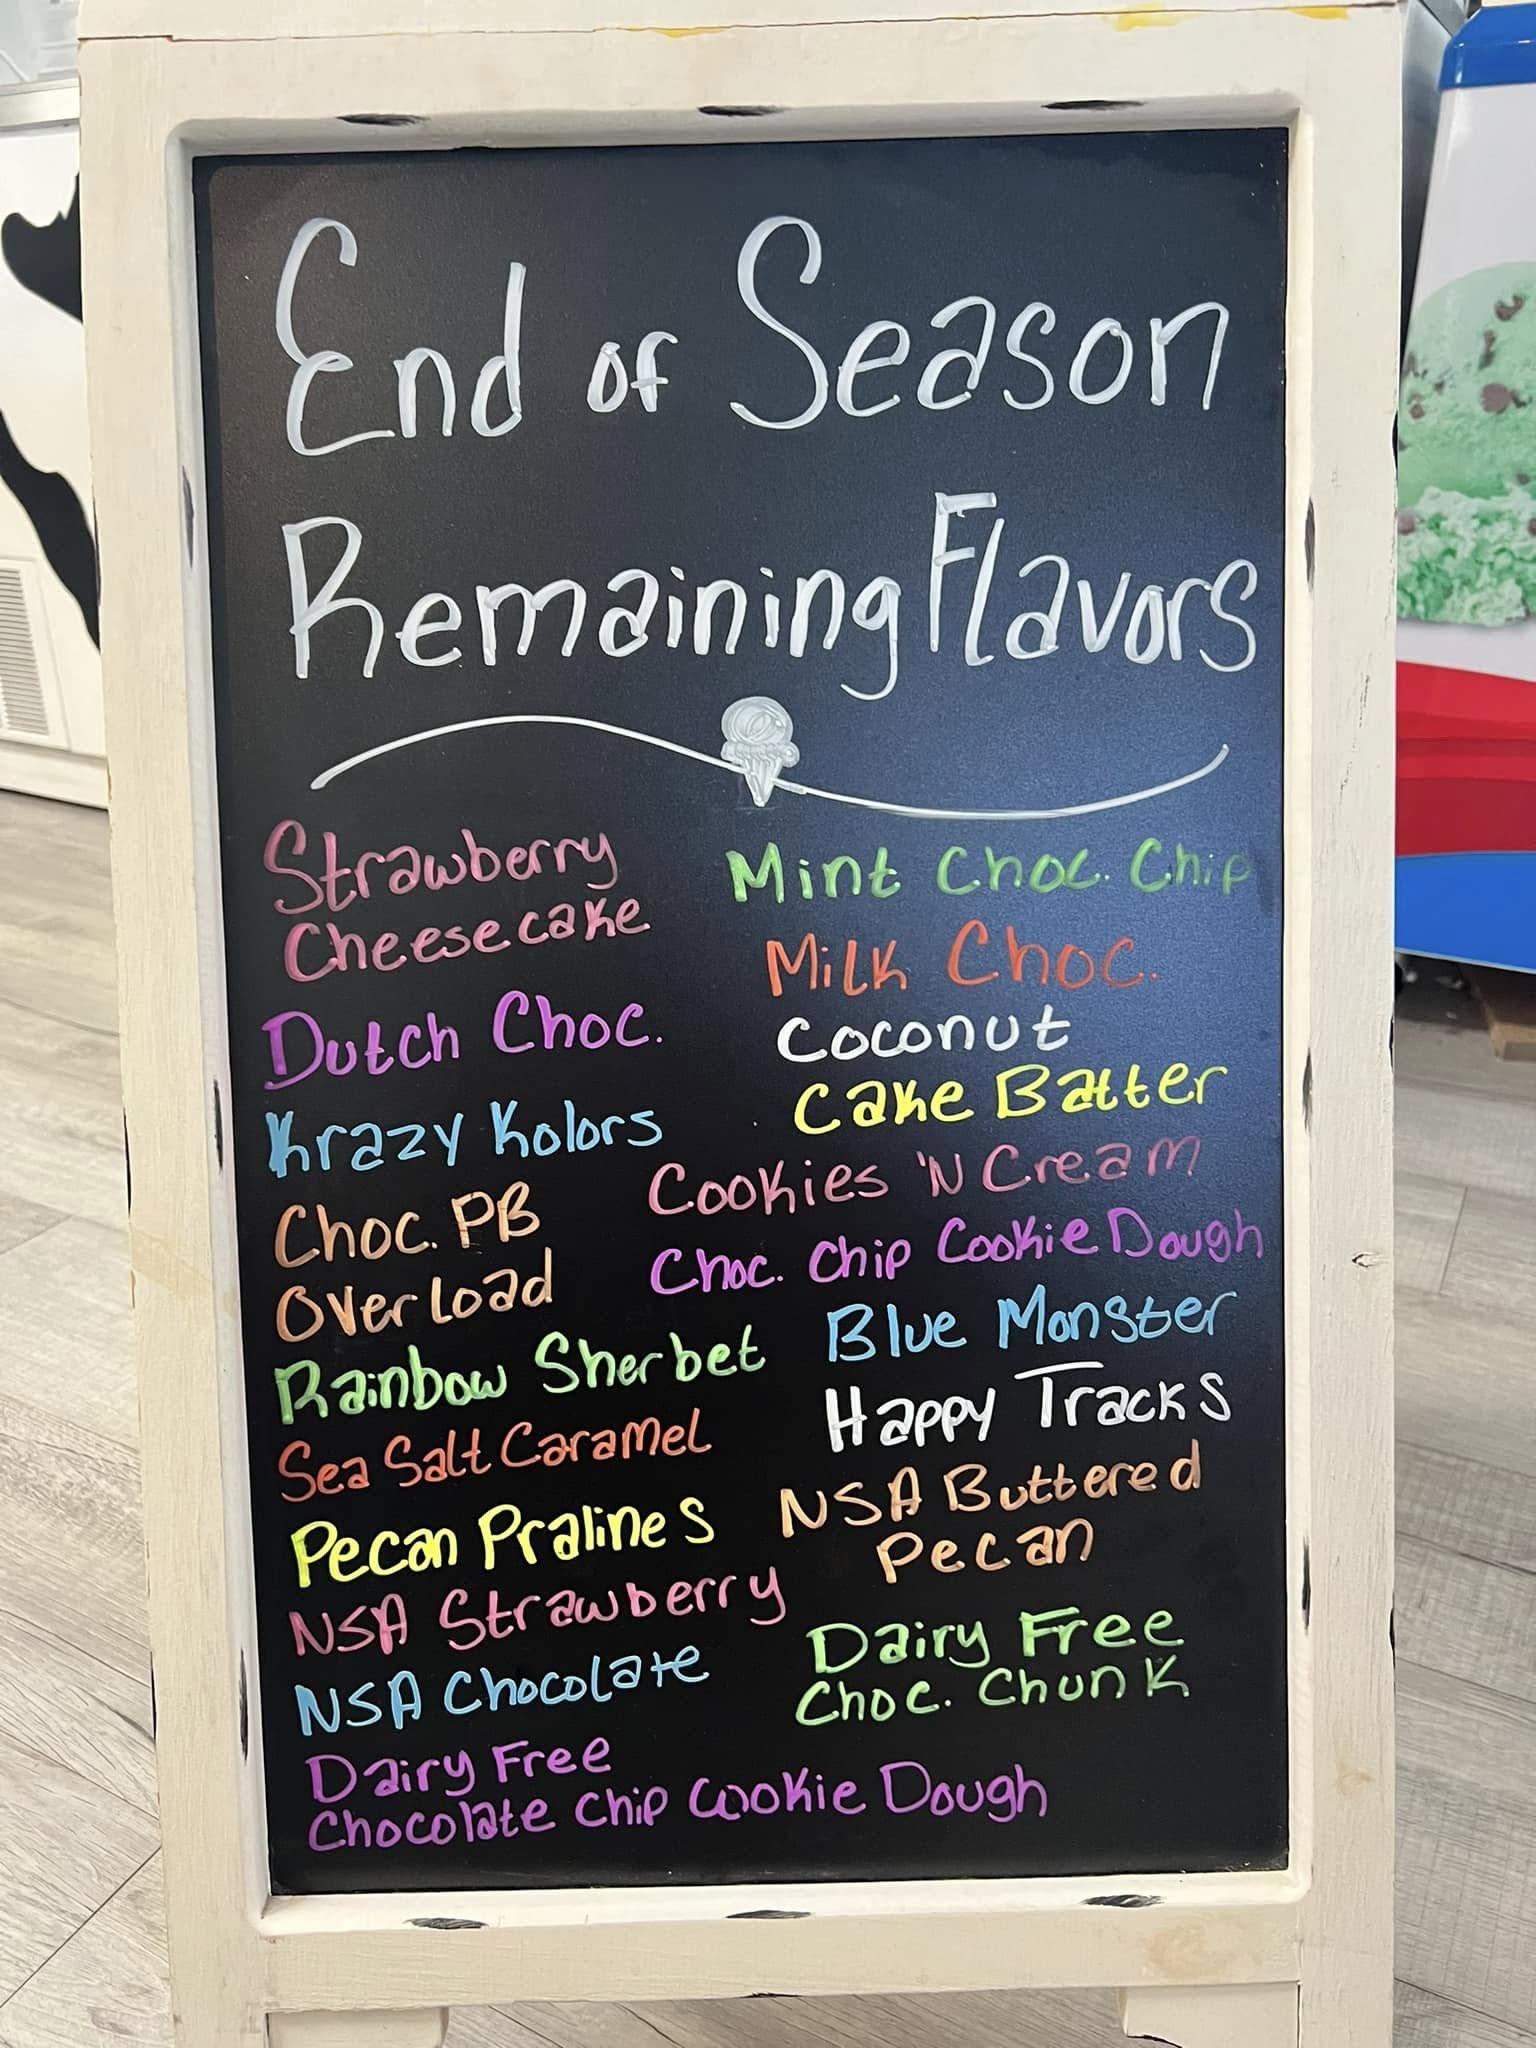 End of Season
Remaining Flavors
Strawberry
Cheesecake
Dutch Choc.
Krazy Kolors
Choc. PB
Overload
Rainbow Sherbet
Sea Salt Caramel
Pecan Pralines
NSA Strawberry
NSA Chocolate
Dairy Free
Chocolate Chip Cookie Dough
Mint Choc. Chip
Milk Choc.
Coconut
Cake Batter
Cookies 'N Cream
Choc. Chip Cookie Dough
Blue Monster
Happy Tracks
NSA Buttered
Pecan
Dairy Free
Choc. Chunk